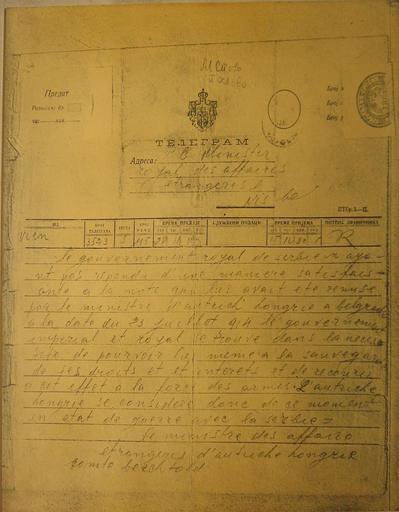 Предат
ТЕЛЕГРАМ
Адреса:
Ministre
Royal des affaires
etrangeres
Nis
ВРЕМЕ ПРЕДАЈЕ
СЛУЖБЕНИ ПОДАЦИ
ВРЕМЕ ПРИЈЕМА
3523
Le gouvernement royal de Serbie n aya
nt pas repondu d une maniere satisfais
ante a la note qui lui avait ete remise
par le ministre d'autriche hongrie a Belgrade
a la date du 23 juillet 914 le gouverneme
imperial et royal se trouve dans la neces
site de pourvoir lui meme a la sauvegar
de ses droits et et interets et de recourir
a cet effet a la force des armes. L'autriche
hongrie se considere donc de ce moment
en etat de guerre avec la serbie=
le ministre des affaire
etrangeres d'autriche hongrie
comte berchtold